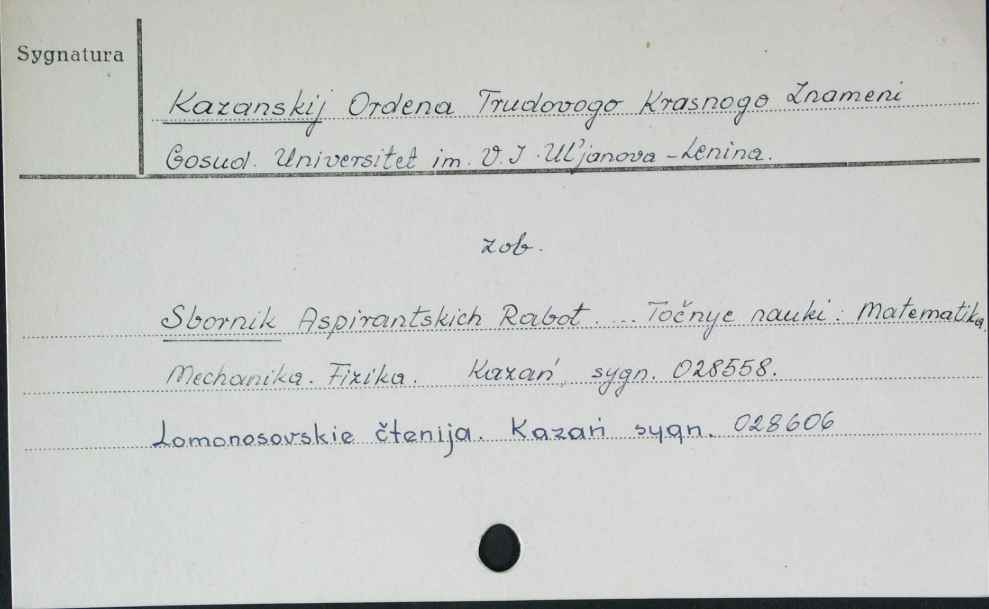 Sygnatura
Kazanskij Ordena Trudovogo Krasnogo Znameni
Gosud. Universitet im. V. I. Ul'janova-Lenina.
zob.
Sbornik Aspirantskich Rabot. ... Točnye nauki: Matematika.
Mechanika. Fizika. Kazań, sygn. 028558.
Lomonosovskie čtenija. Kazań sygn. 028606